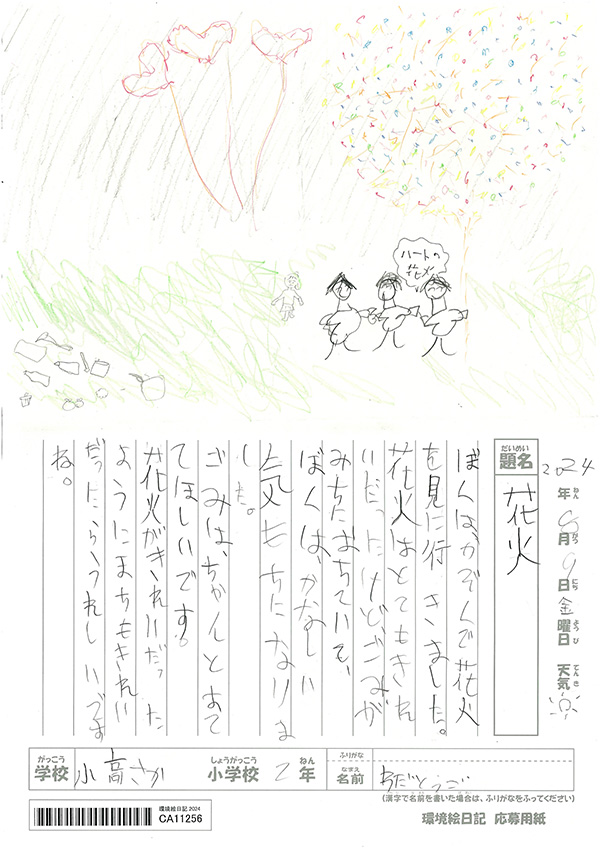 ハートの
花火
だいめい
題名
花火
2024年ねん8月がつ9日にち金曜日ようび天気てんき
ぼくは、かぞくで花火
を見に行きました。
花火はとてもきれ
いだったけどごみが
みちにおちていて、
ぼくは、かなしい
気もちになりま
した。
ごみは、ちゃんとすて
てほしいです。
花火がきれいだった
ようにまちもきれい
だったらうれしいです
ね。
がっこう
学校
小高さか
しょうがっこう
小学校
2
ねん
年
ふりがな
なまえ
名前
(漢字で名前を書いた場合は、ふりがなをふってください)
環境絵日記2024
CA11256
環境絵日記 応募用紙